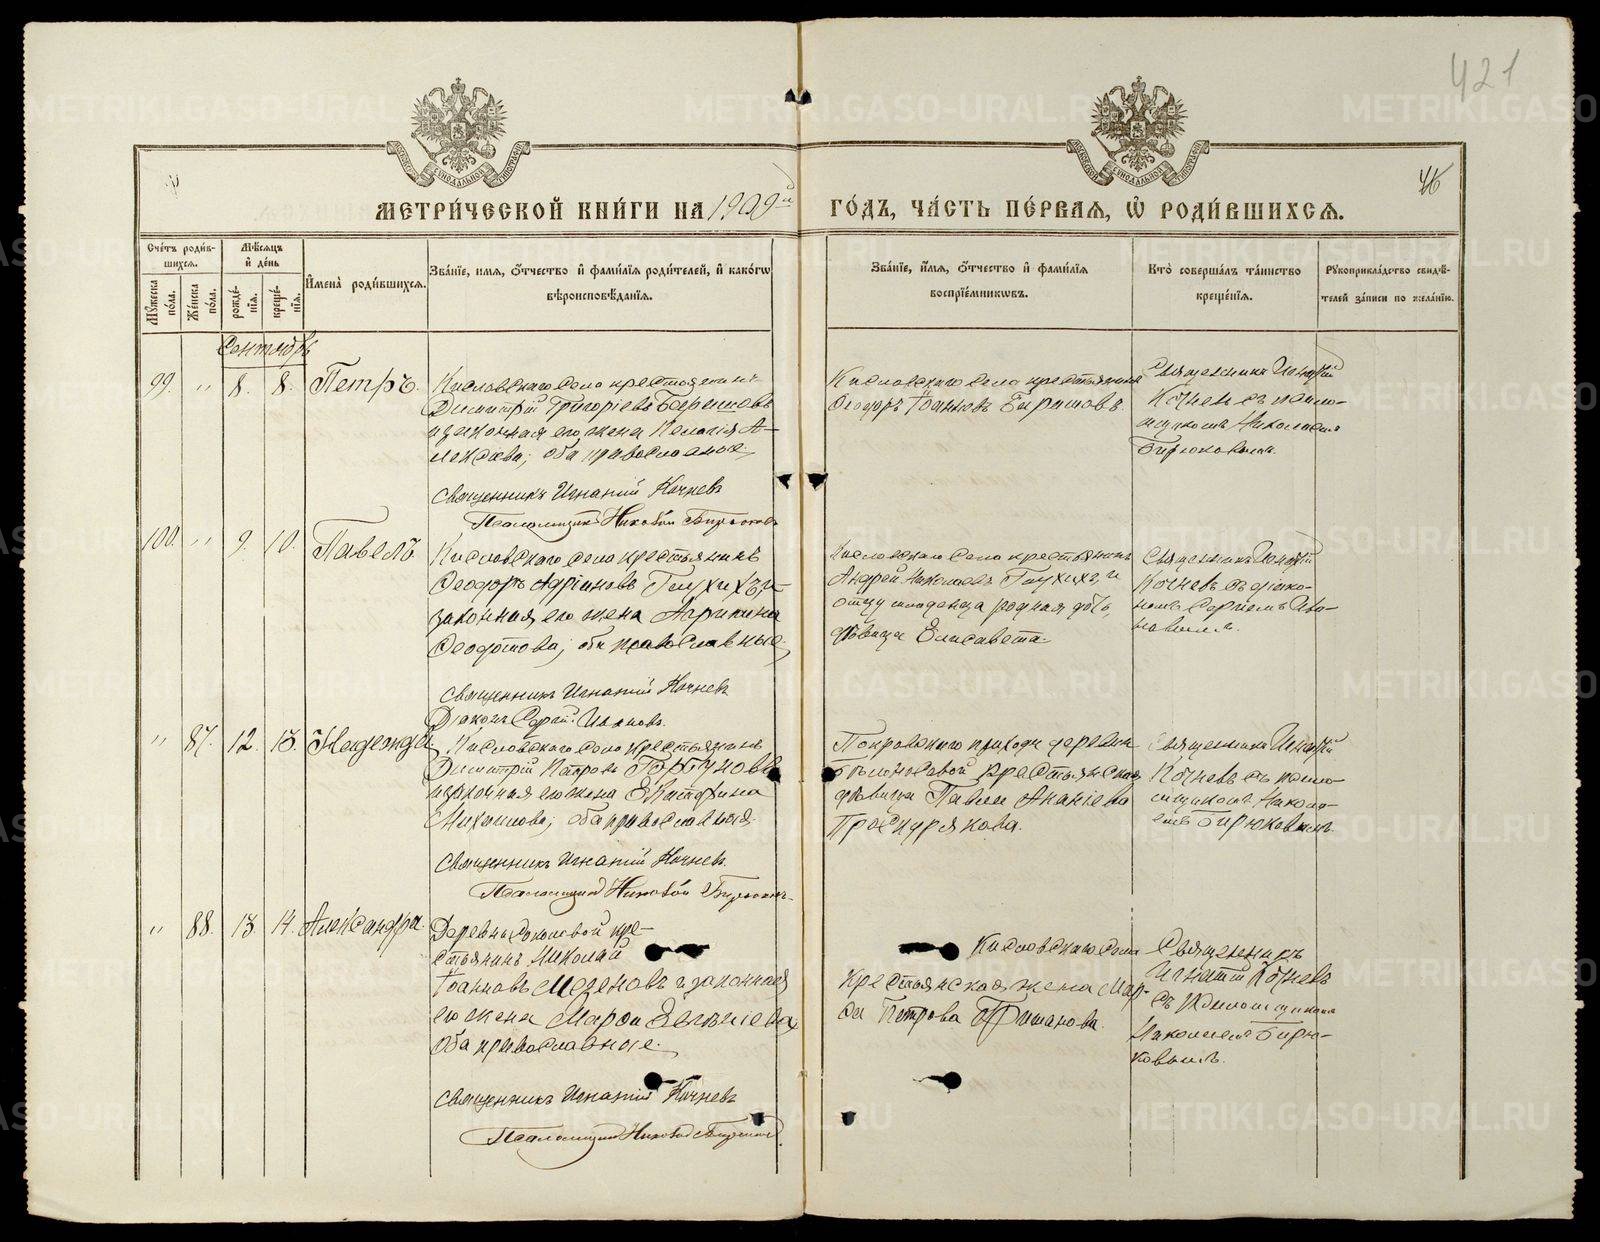 421
46
МЕТРИ́ЧЕСКОЙ КНИ́ГИ НА 1909й ГО́ДЪ, ЧА́СТЬ ПЕ́РВАЯ, Ѡ҆ РОДИ́ВШИХСЯ.
Сче́тъ роди́в-
шихся.
Мѣ́сяцъ
и҆ де́нь
Мꙋ́жеска по́ла.
Же́нска по́ла.
рожде́-
нїя.
креще́-
нїя.
И҆мена̀ роди́вшихся.
Зва́нїе, имя, о҆́тчество и҆ фами́лїя роди́телей, и҆ како́гѡ
вѣроисповѣ́данїя.
Зва́нїе, и҆́мя, о҆́тчество и҆ фами́лїя
воспрїе́мникѡвъ.
Кто̀ соверша́лъ та́инство
креще́нїя.
Рꙋкоприкла́дство свидѣ́-
телей за́писи по жела́нїю.
Сентябрь
99. " 8. 8. Петръ.
Кисловскаго села крестьянинъ
Димитрій Григоріевъ
законная его жена Пелагія А-
лексѣева; оба православные.
Священникъ Игнатій Кочневъ
Псаломщикъ Николай Бирюковъ
Кисловскаго села крестьянинъ
Ѳеодоръ Іоанновъ
Священникъ Игнатій
Кочневъ съ псало-
мщикомъ Николаемъ
Бирюковымъ.
100. " 9. 10. Павелъ.
Кисловскаго села крестьянинъ
Ѳеодоръ Адріановъ Глухихъ, и
законная его жена Агрипина
Ѳеодотова; оба православные.
Священникъ Игнатій Кочневъ
Діаконъ Сергій Ивановъ.
Кисловскаго села крестьянинъ
Андрей Николаевъ Глухихъ, и
отцу младенца родная дочь,
дѣвица Елисавета.
Священникъ Игнатій
Кочневъ съ діако-
номъ Сергіемъ Ива-
новымъ.
" 87. 12. 13. Надежда
Кисловскаго села крестьянинъ
Димитрій Петровъ Горбуновъ
законная его жена Екатерина
Михаилова; оба православные.
Священникъ Игнатій Кочневъ.
Псаломщикъ Николай Бирюковъ
Покровскаго прихода деревни
крестьянская
дѣвица Павла Ананіева
Проскурякова.
Священникъ Игнатій
Кочневъ съ псало-
мщикомъ Никола-
емъ Бирюковымъ.
" 88. 13. 14. Александра.
Деревни Соколовой кре-
стьянинъ Николай
Іоанновъ Мезеновъ и законная
его жена Марѳа Евгеніева
оба православные.
Священникъ Игнатій Кочневъ
Псаломщикъ Николай Бирюковъ.
Кисловскаго села
крестьянская жена Мар-
ѳа Петрова
Священникъ
Игнатій Кочневъ
съ псаломщикомъ
Николаемъ Бирю-
ковымъ.
METRIKI.GASO-URAL.RU